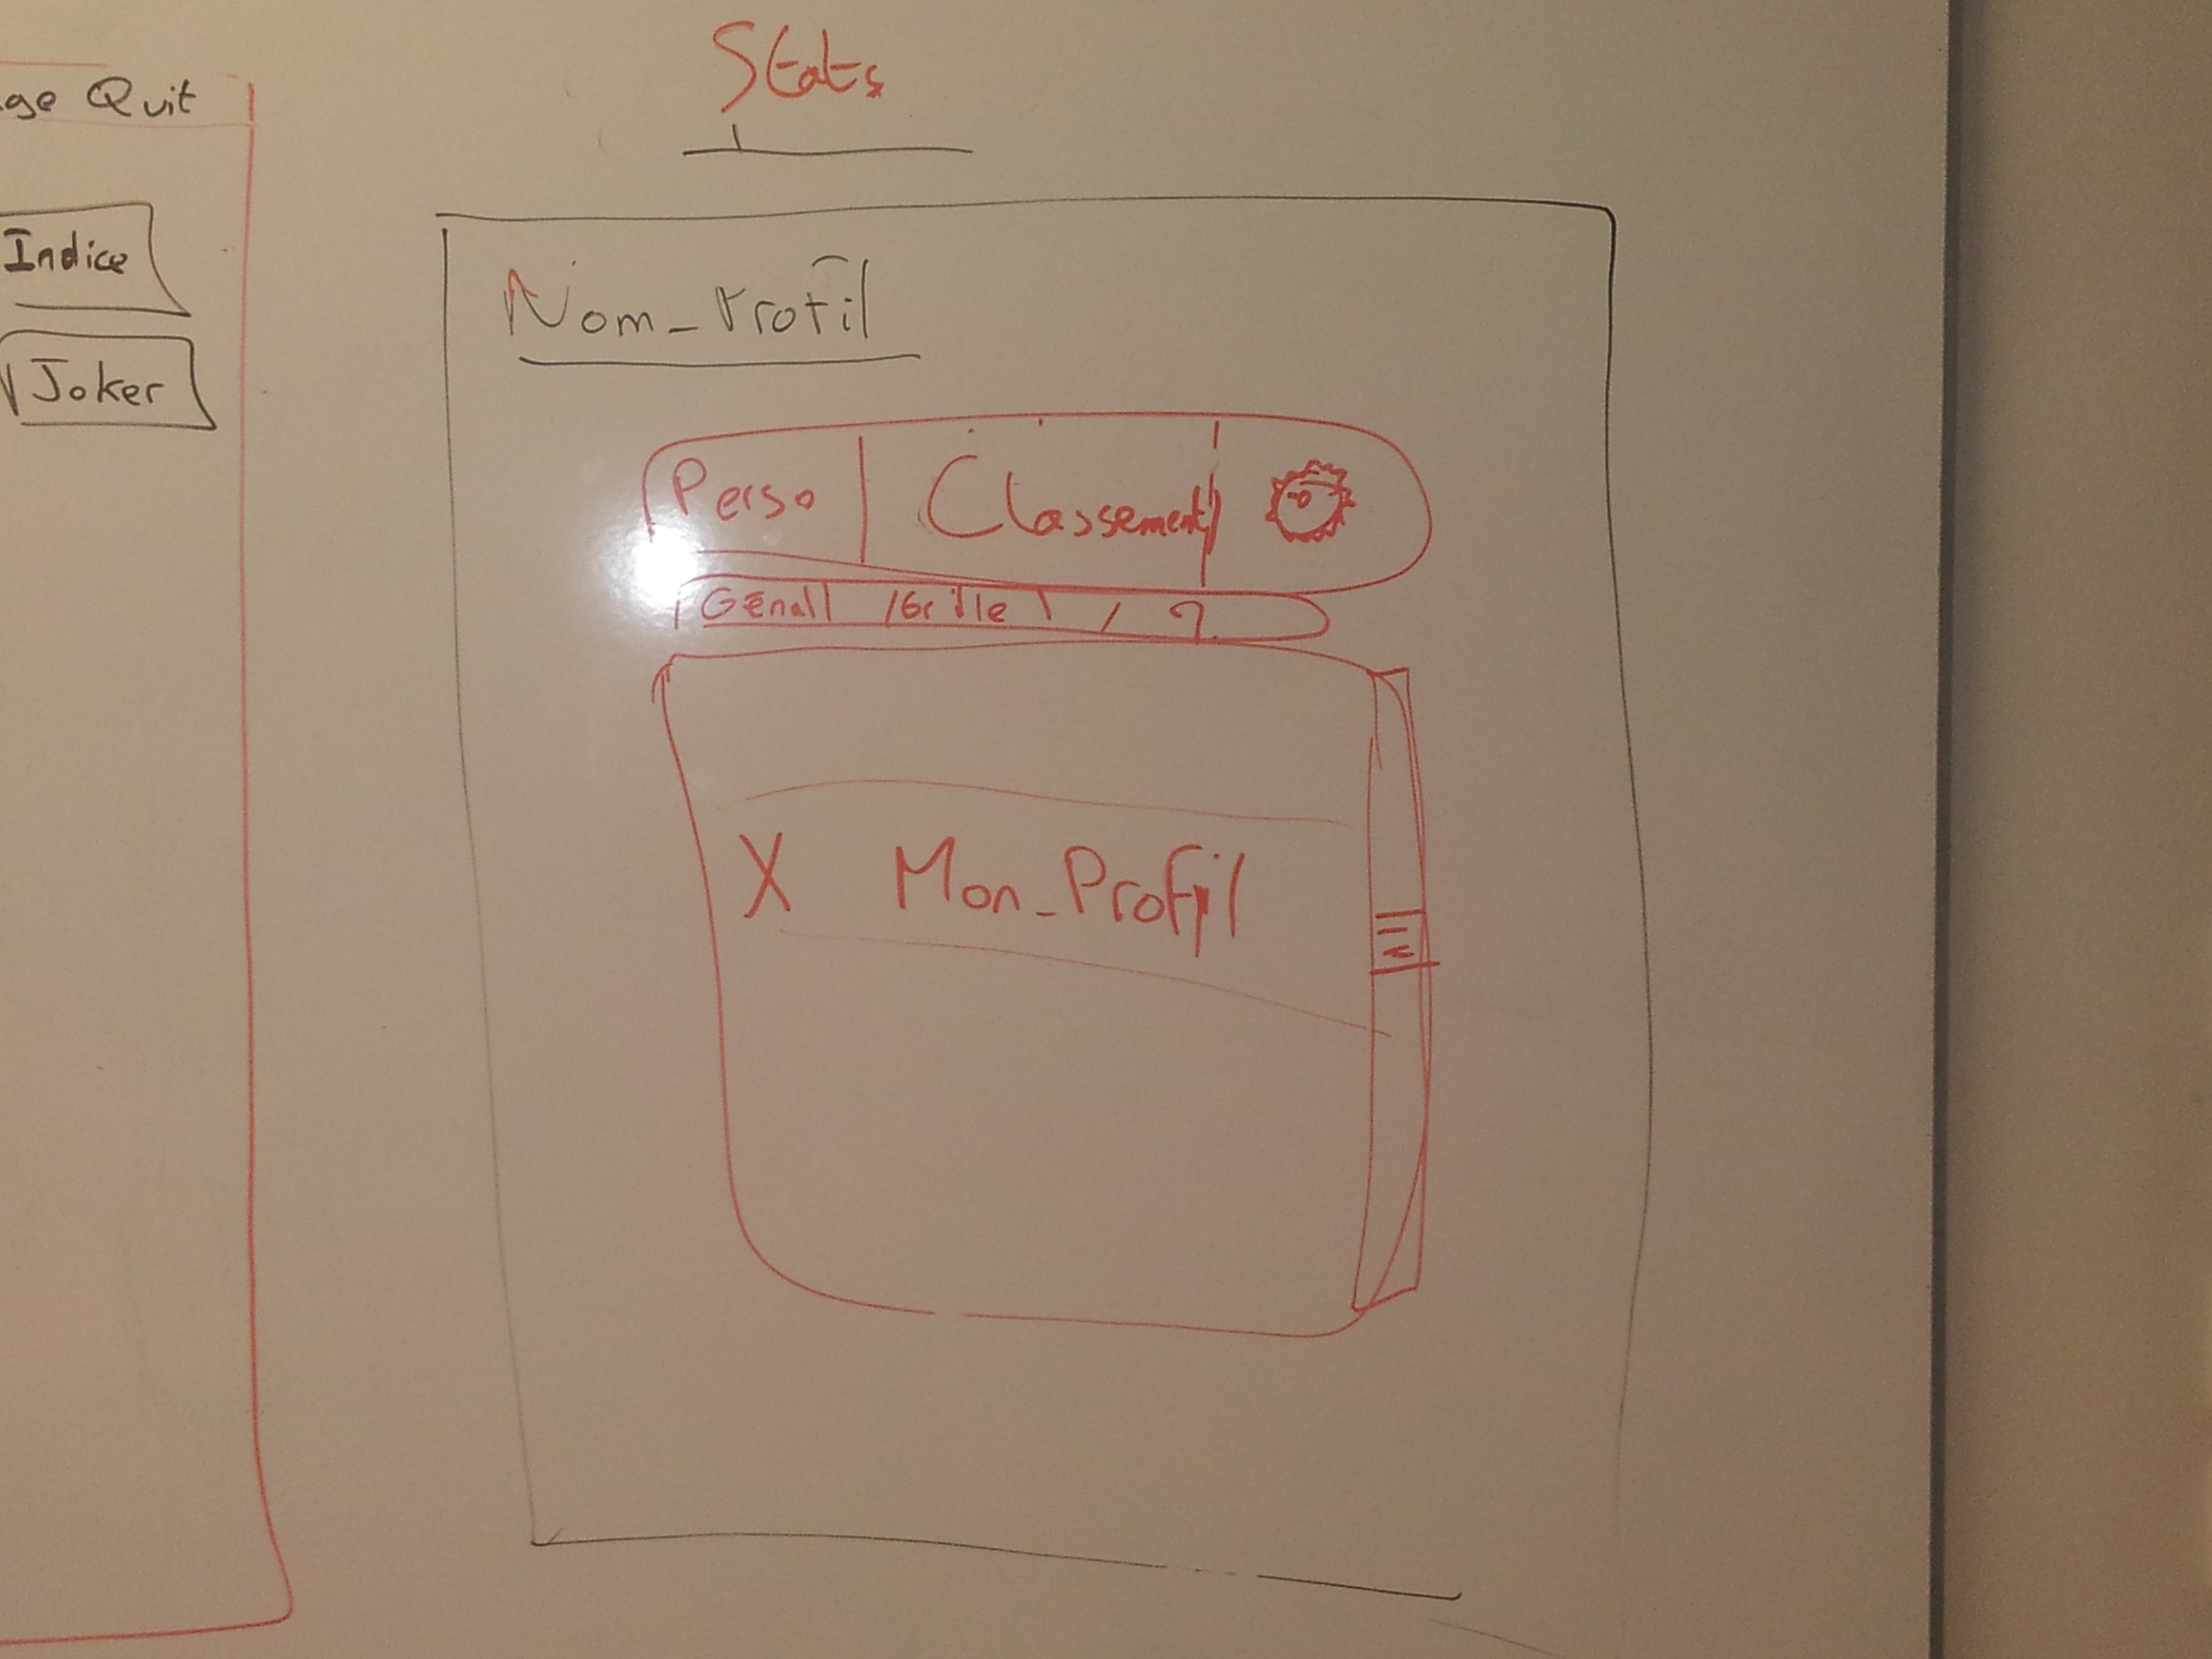 Stats
Quit
Indice
Joker
Nom_Profil
Perso | Classement
/Grille / ?
X Mon_Profil